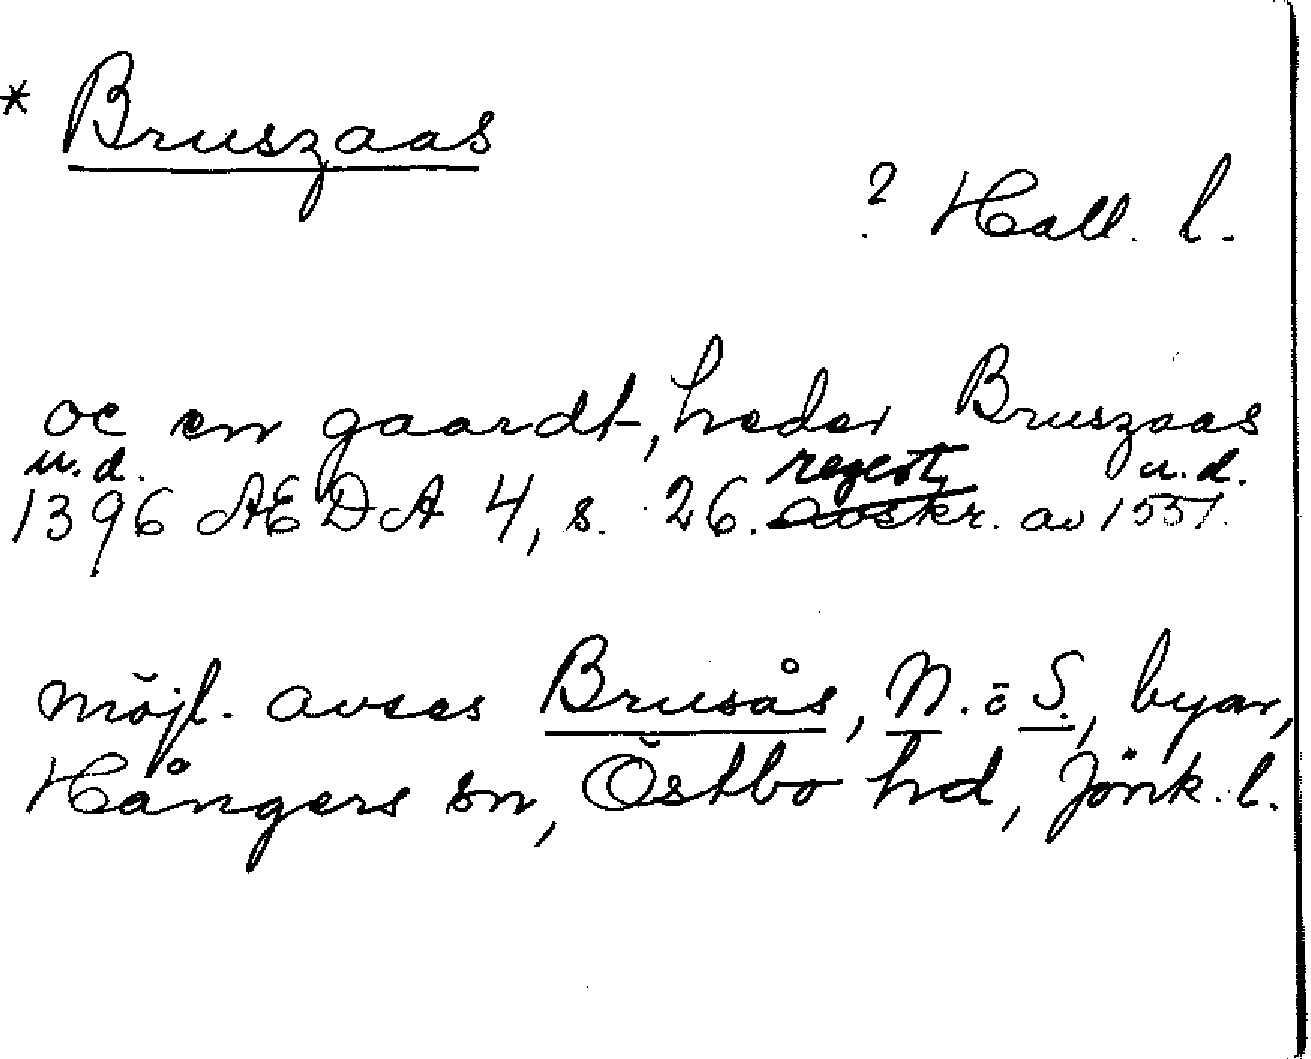 * Bruszaas
? Hall. l.
oc en gaardt, heder Bruszaas
u.d. regest u.d.
1396 AEDA 4, s. 26. avskr. av 1551.
möjl. avses Brusås, N. o S., byar,
Hångers sn, Östbo hd, Jönk. l.